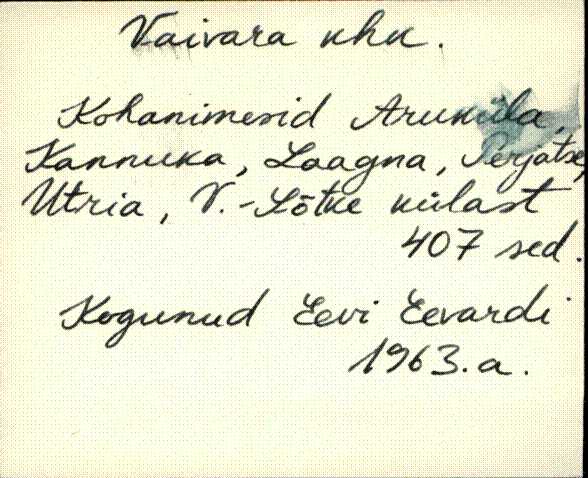 Vaivara khk.
Kohanimesid Aruküla,
Kannuka, Laagna, Perjatse,
Utria, V.-Sõtke külast
407 sed.
Kogunud Eevi Eevardi
1963.a.